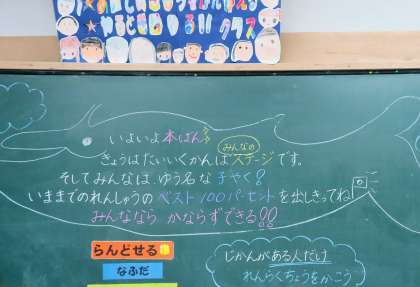 クラス
いよいよ本ばん
みんなの
きょうはたいいくかんはステージです。
そしてみんなは、ゆう名な子やく?
いままでのれんしゅうのベスト100パーセントを出しきってね
みんななら かならずできる!!
らんどせる
なふだ
じかんがある人だけ
れんらくちょうをかこう